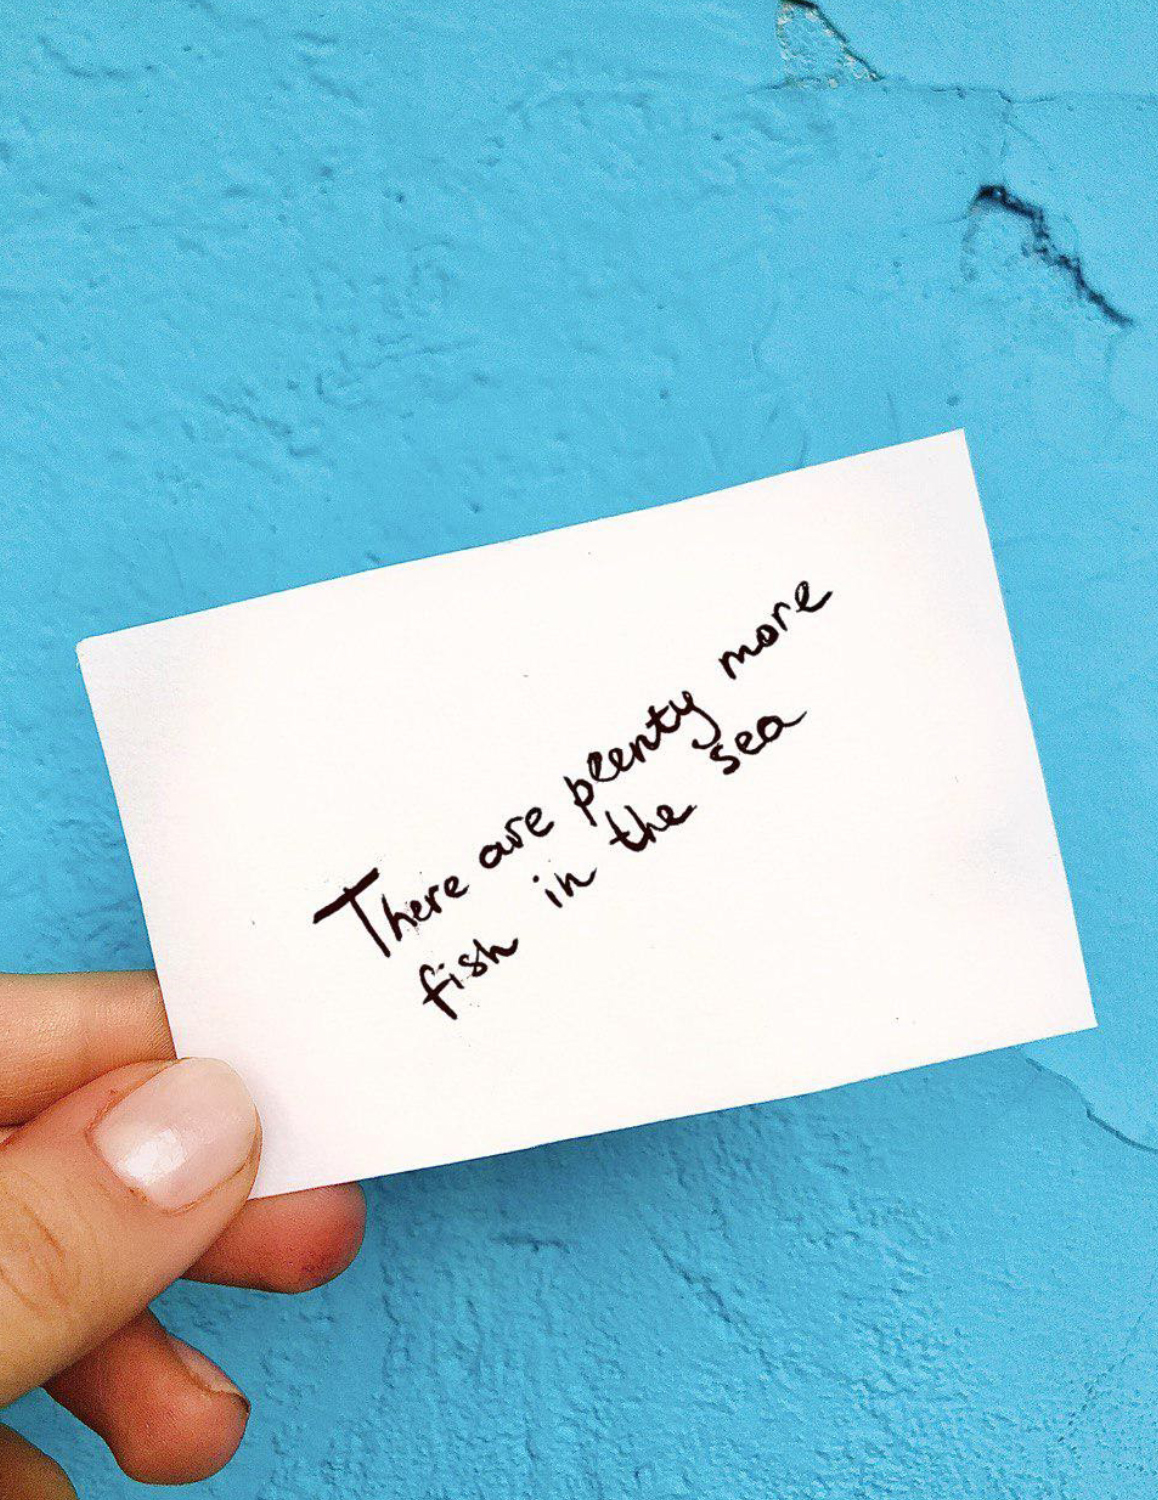 There are plenty more
fish in the sea